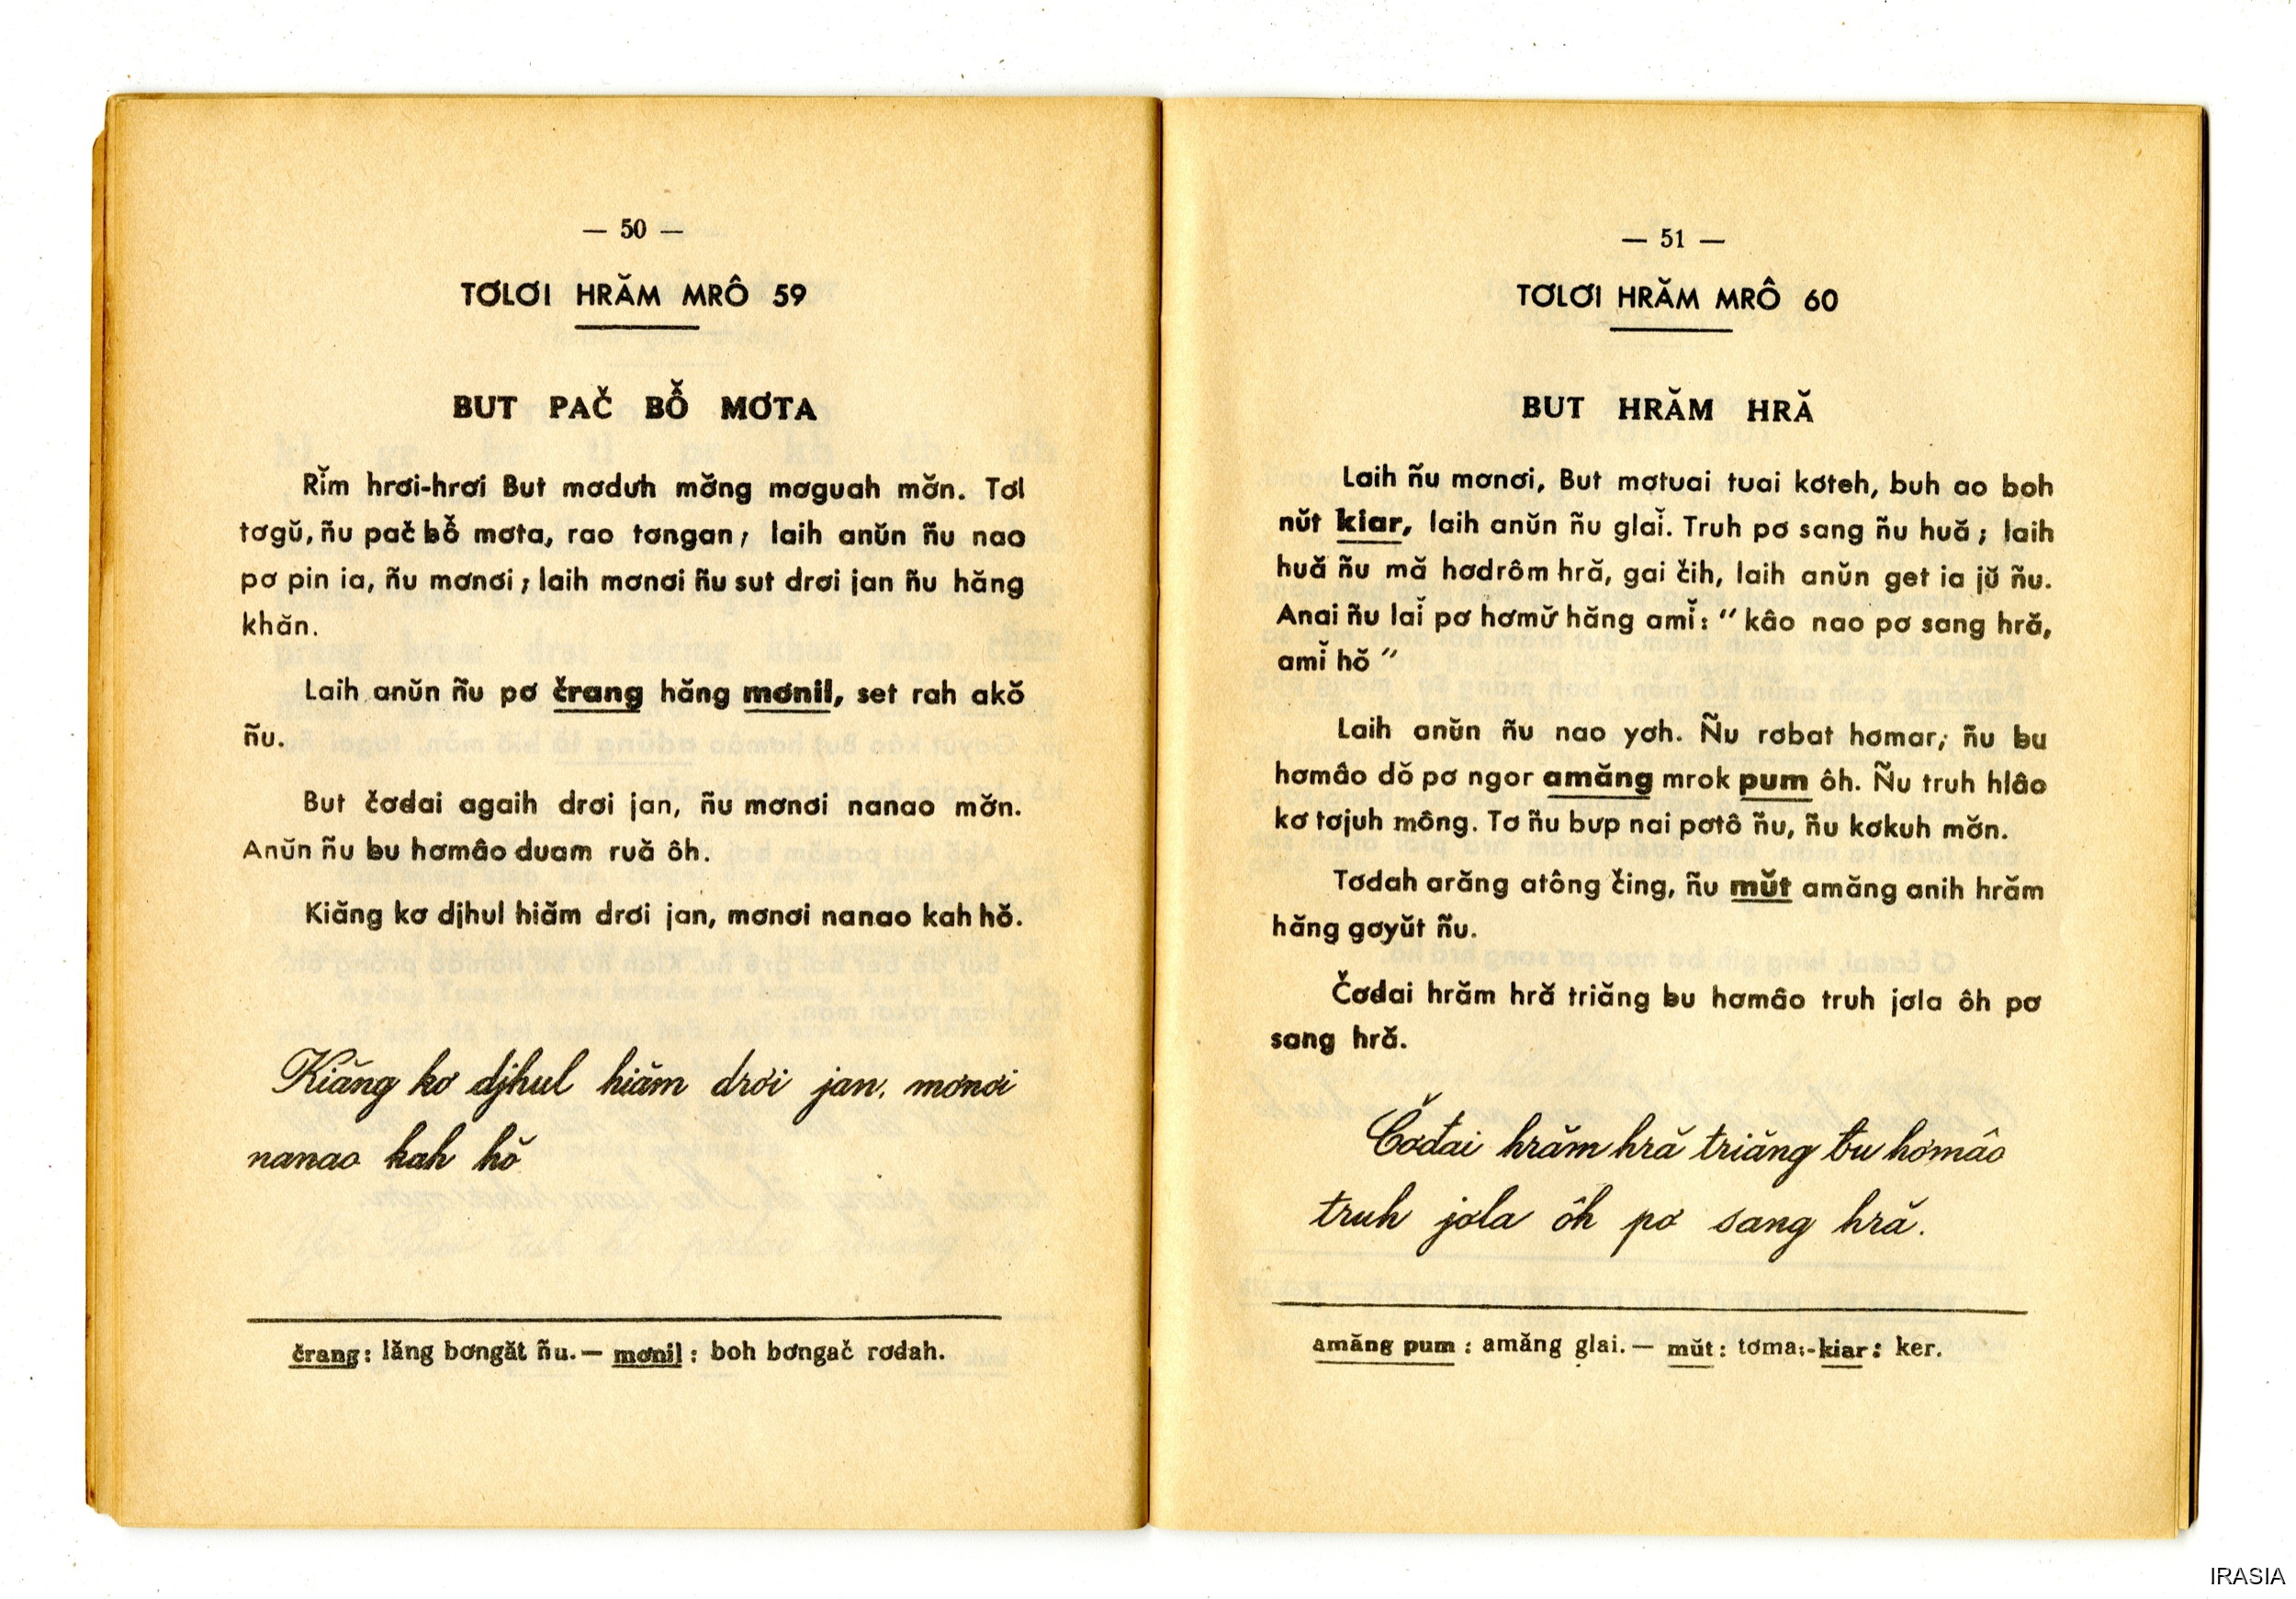 — 50 —
TƠLƠI HRĂM MRÔ 59
BUT PAČ BỖ̌ MƠTA
Rĭm hrơi-hrơi But mơdưh mơ̆ng mơguah mơ̆n. Tơl
tơgŭ, ñu pač bô̆ mơta, rao tơngan; laih anŭn ñu nao
pơ pin ia, ñu mơnơi; laih mơnơi ñu sut drơi jan ñu hăng
khăn.
Laih anŭn ñu pơ črang hăng mơnil, set rah akŏ
ñu.
But čơdai agaih drơi jan, ñu mơnơi nanao mơ̆n.
Anŭn ñu ƀu hơmâo duam ruă ôh.
Kiăng kơ djhul hiăm drơi jan, mơnơi nanao kah hŏ.
Kiăng kơ djhul hiăm drơi jan, mơnơi
nanao kah hŏ
črang: lăng bơngăt ñu. — mơnil: boh bơngač rơdah.
— 51 —
TƠLƠI HRĂM MRÔ 60
BUT HRĂM HRĂ
Laih ñu mơnơi, But mơtuai tuai kơteh, buh ao boh
nŭt kiar, laih anŭn ñu glaĭ. Truh pơ sang ñu huă; laih
huă ñu mă hơdrôm hră, gai čih, laih anŭn get ia jŭ ñu.
Anai ñu laĭ pơ hơmư̆ hăng amĭ: “ kâo nao pơ sang hră,
amĭ hŏ ”
Laih anŭn ñu nao yơh. Ñu rơbat hơmar; ñu ƀu
hơmâo dŏ pơ ngor amăng mrok pum ôh. Ñu truh hlâo
kơ tơjuh mông. Tơ ñu bưp nai pơtô ñu, ñu kơkuh mơ̆n.
Tơdah arăng atông čing, ñu mŭt amăng anih hrăm
hăng gơyŭt ñu.
Čơđai hrăm hră triăng ƀu hơmâo truh jơla ôh pơ
sang hră.
Čơđai hrăm hră triăng ƀu hơmâo
truh jơla ôh pơ sang hră.
amăng pum : amăng glai. — mŭt : tơma.- kiar : ker.
IRASIA